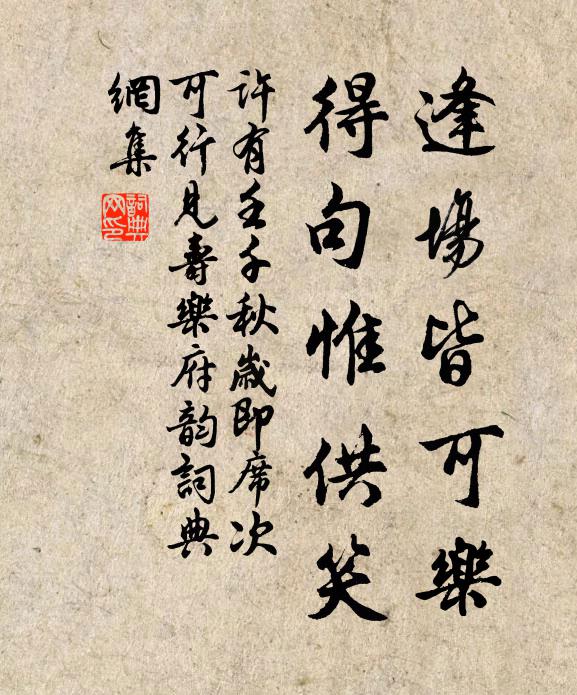 逢場皆可樂
得句惟供笑
許有壬千秋歲即席次
可行見壽樂府韵詞典
網集
詞典網印